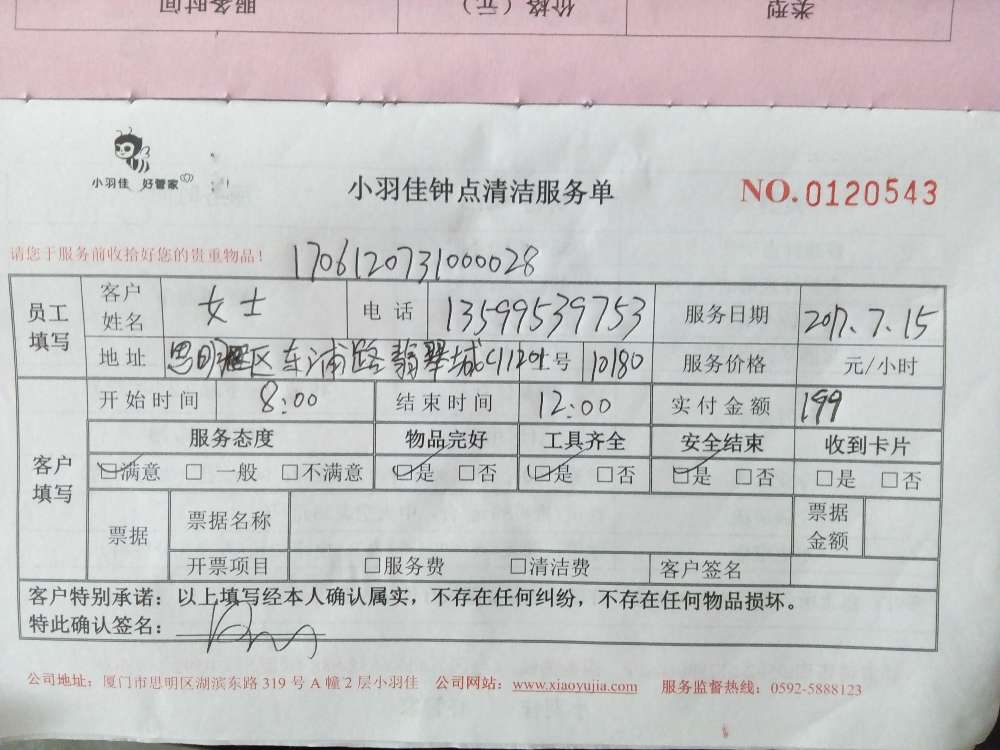 服务时间 价格（元） 类型
小羽佳 好管家
小羽佳钟点清洁服务单
NO.0120543
请您于服务前收拾好您的贵重物品！
1706120731000028
员工填写 客户姓名 女士 电话 13599539753 服务日期 2017.7.15
地址 思明区东浦路翡翠城 号 10180 服务价格 元/小时
客户填写 开始时间 8:00 结束时间 12:00 实付金额 199
服务态度 物品完好 工具齐全 安全结束 收到卡片
☑满意 □一般 □不满意 ☑是 □否 ☑是 □否 ☑是 □否 □是 □否
票据 票据名称 票据金额
开票项目 □服务费 □清洁费 客户签名
客户特别承诺：以上填写经本人确认属实，不存在任何纠纷，不存在任何物品损坏。
特此确认签名：
公司地址：厦门市思明区湖滨东路319号A幢2层小羽佳 公司网站：www.xiaoyujia.com 服务监督热线：0592-5888123